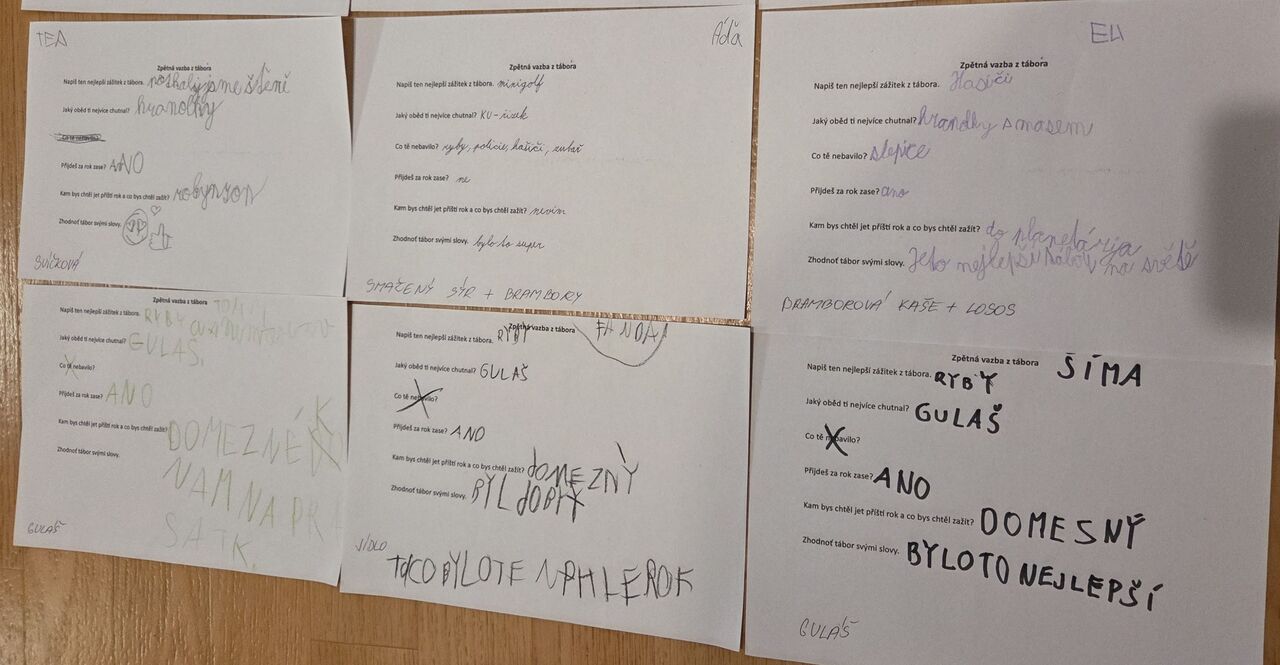 TEA
Zpětná vazba z tábora
Napiš ten nejlepší zážitek z tábora. potkaly jsme štěně
Jaký oběd ti nejvíce chutnal? hranolky
Co tě nebavilo?
Přijdeš za rok zase? ANO
Kam bys chtěl jet příští rok a co bys chtěl zažít? robynson
Zhodnoť tábor svými slovy.
SVÍČKOVÁ
Áďa
Zpětná vazba z tábora
Napiš ten nejlepší zážitek z tábora. minigolf
Jaký oběd ti nejvíce chutnal? KU-řízek
Co tě nebavilo? ryby, policie, hasiči,
Přijdeš za rok zase? ne
Kam bys chtěl jet příští rok a co bys chtěl zažít? nevím
Zhodnoť tábor svými slovy. bylo to super
SMAČENÝ SÝR + BRAMBORY
Zpětná vazba z tábora
Napiš ten nejlepší zážitek z tábora. Hasiči
Jaký oběd ti nejvíce chutnal? hranolky s masem
Co tě nebavilo? slepice
Přijdeš za rok zase? ano
Kam bys chtěl jet příští rok a co bys chtěl zažít? do planetárja
Zhodnoť tábor svými slovy. Jeto nejlepší tábor na světě
BRAMBOROVÁ KAŠE + LOSOS
Zpětná vazba z tábora
Napiš ten nejlepší zážitek z tábora. RYBY
Jaký oběd ti nejvíce chutnal? GULAŠ.
Co tě nebavilo?
Přijdeš za rok zase? ANO
Kam bys chtěl jet příští rok a co bys chtěl zažít? DOMEZNÉ
Zhodnoť tábor svými slovy. NAM NA
GULAŠ
Zpětná vazba z tábora FANDA
Napiš ten nejlepší zážitek z tábora. RYBY
Jaký oběd ti nejvíce chutnal? GULAŠ
Co tě nebavilo?
Přijdeš za rok zase? ANO
Kam bys chtěl jet příští rok a co bys chtěl zažít? dOMEZNÝ
Zhodnoť tábor svými slovy. BYL dOBRÝ
JÍDLO
TOCO BYLOTE
Zpětná vazba z tábora ŠÍMA
Napiš ten nejlepší zážitek z tábora. RYBY
Jaký oběd ti nejvíce chutnal? GULAŠ
Co tě nebavilo?
Přijdeš za rok zase? ANO
Kam bys chtěl jet příští rok a co bys chtěl zažít? DOMESNÝ
Zhodnoť tábor svými slovy. BYLOTO NEJLEPŠÍ
GULÁŠ